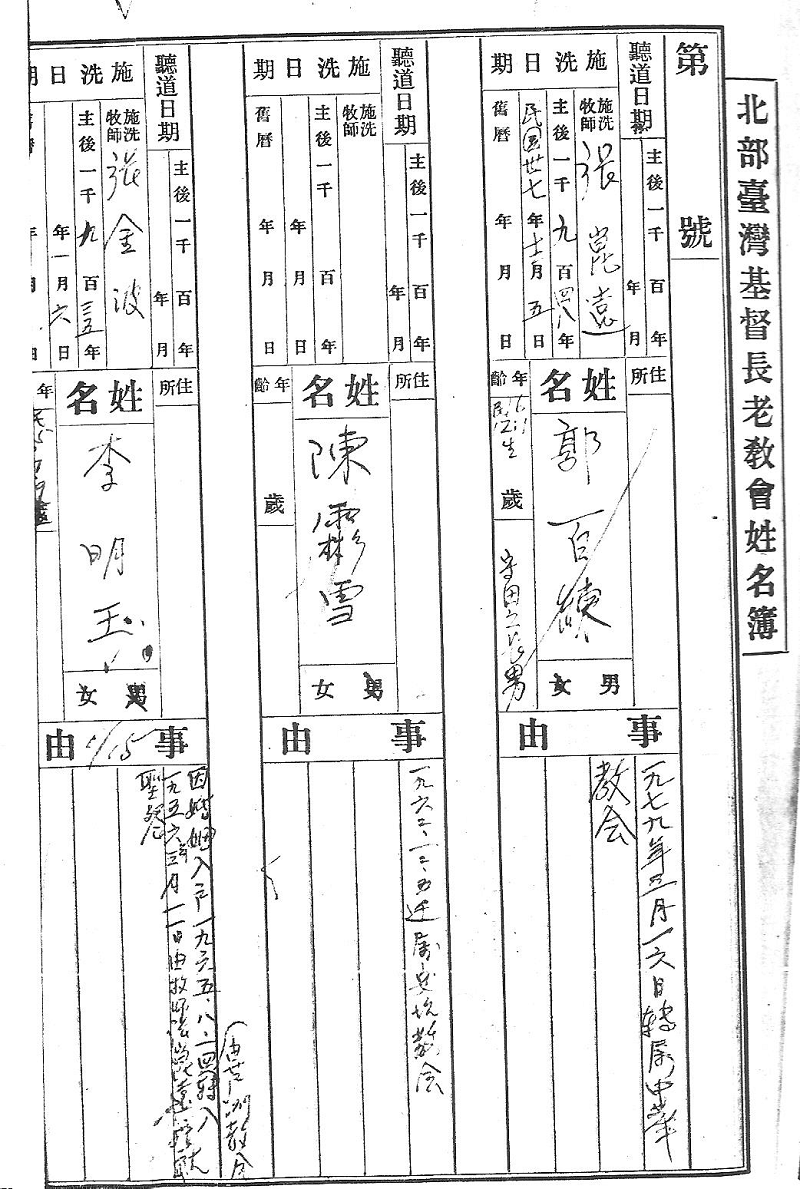 北部臺灣基督長老教會姓名簿
第 號
聽道日期
主後一千 百 年
年 月
施洗日期
施洗牧師 張崑遠
主後一千九百四八年
民国卅七年十二月五日
舊曆 年 月 日
住所
姓名
郭百鍊
男 女
年齡 歲
民12 生
守田之長男
事由
一九七九年三月一六日轉属中華
教会
聽道日期
主後一千 百 年
年 月
施洗日期
施洗牧師
主後一千 百 年
年 月 日
舊曆 年 月 日
住所
姓名
陳霦雪
男 女
年齡 歲
事由
一九六三、一二、五迁属安坑教会
聽道日期
主後一千 百 年
年 月
施洗日期
施洗牧師 張金波
主後一千九百三五年
年一月六日
年 月 日
住所
姓名
李明玉
男 女
年
事由
1/15
(由芦洲教会
因婚姻入戸一九六五、八、一四轉入
一九五六年三月一一日由牧師張崑遠
聖餐